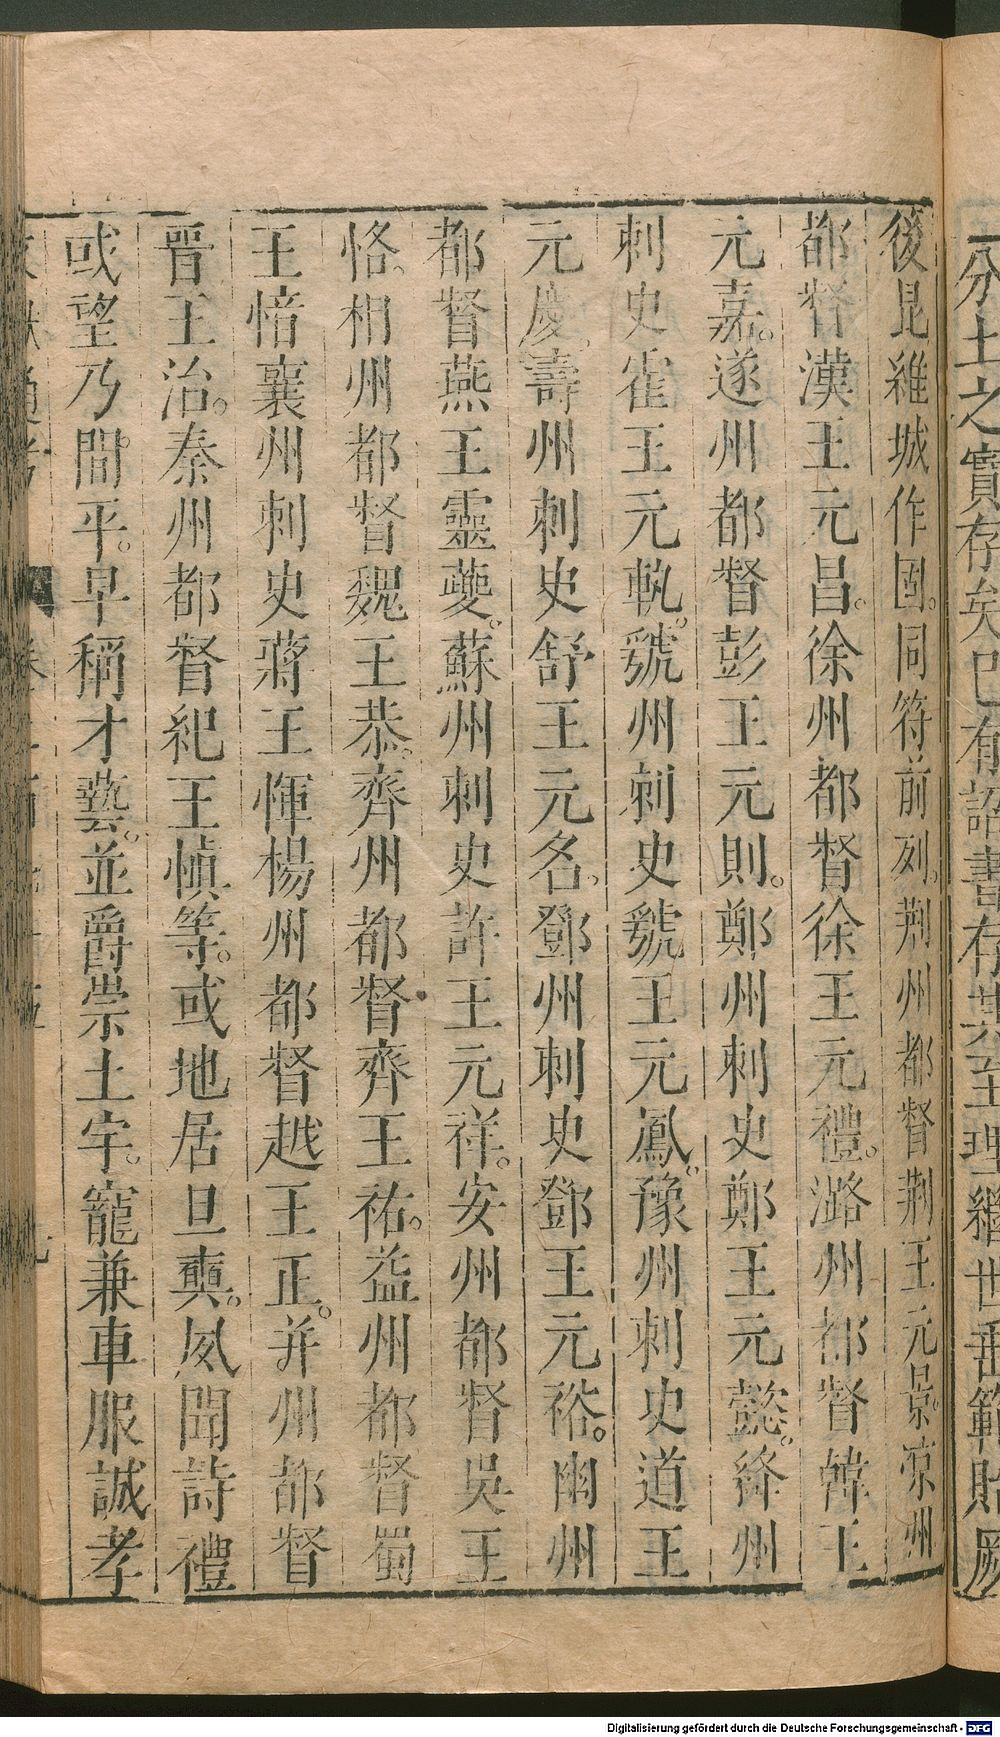 分土之實存矣已有詔書存其至理繼世垂範貽厥
後昆維城作固。同符前列。荆州都督荆王元景。凉州
都督漢王元昌。徐州都督徐王元禮。潞州都督韓王
元嘉。遂州都督彭王元則。鄭州刺史鄭王元懿。絳州
刺史霍王元軌。虢州刺史虢王元鳳。豫州刺史道王
元慶。壽州刺史舒王元名。鄧州刺史鄧王元裕。幽州
都督燕王靈夔。蘇州刺史許王元祥。安州都督吳王
恪。相州都督魏王恭。齊州都督齊王祐。益州都督蜀
王愔襄州刺史蔣王惲楊州都督越王正。并州都督
晉王治。秦州都督紀王慎等。或地居旦奭。夙聞詩禮
或望乃間平。早稱才藝。並爵崇土宇。寵兼車服誠孝
Digitalisierung gefördert durch die Deutsche Forschungsgemeinschaft - DFG